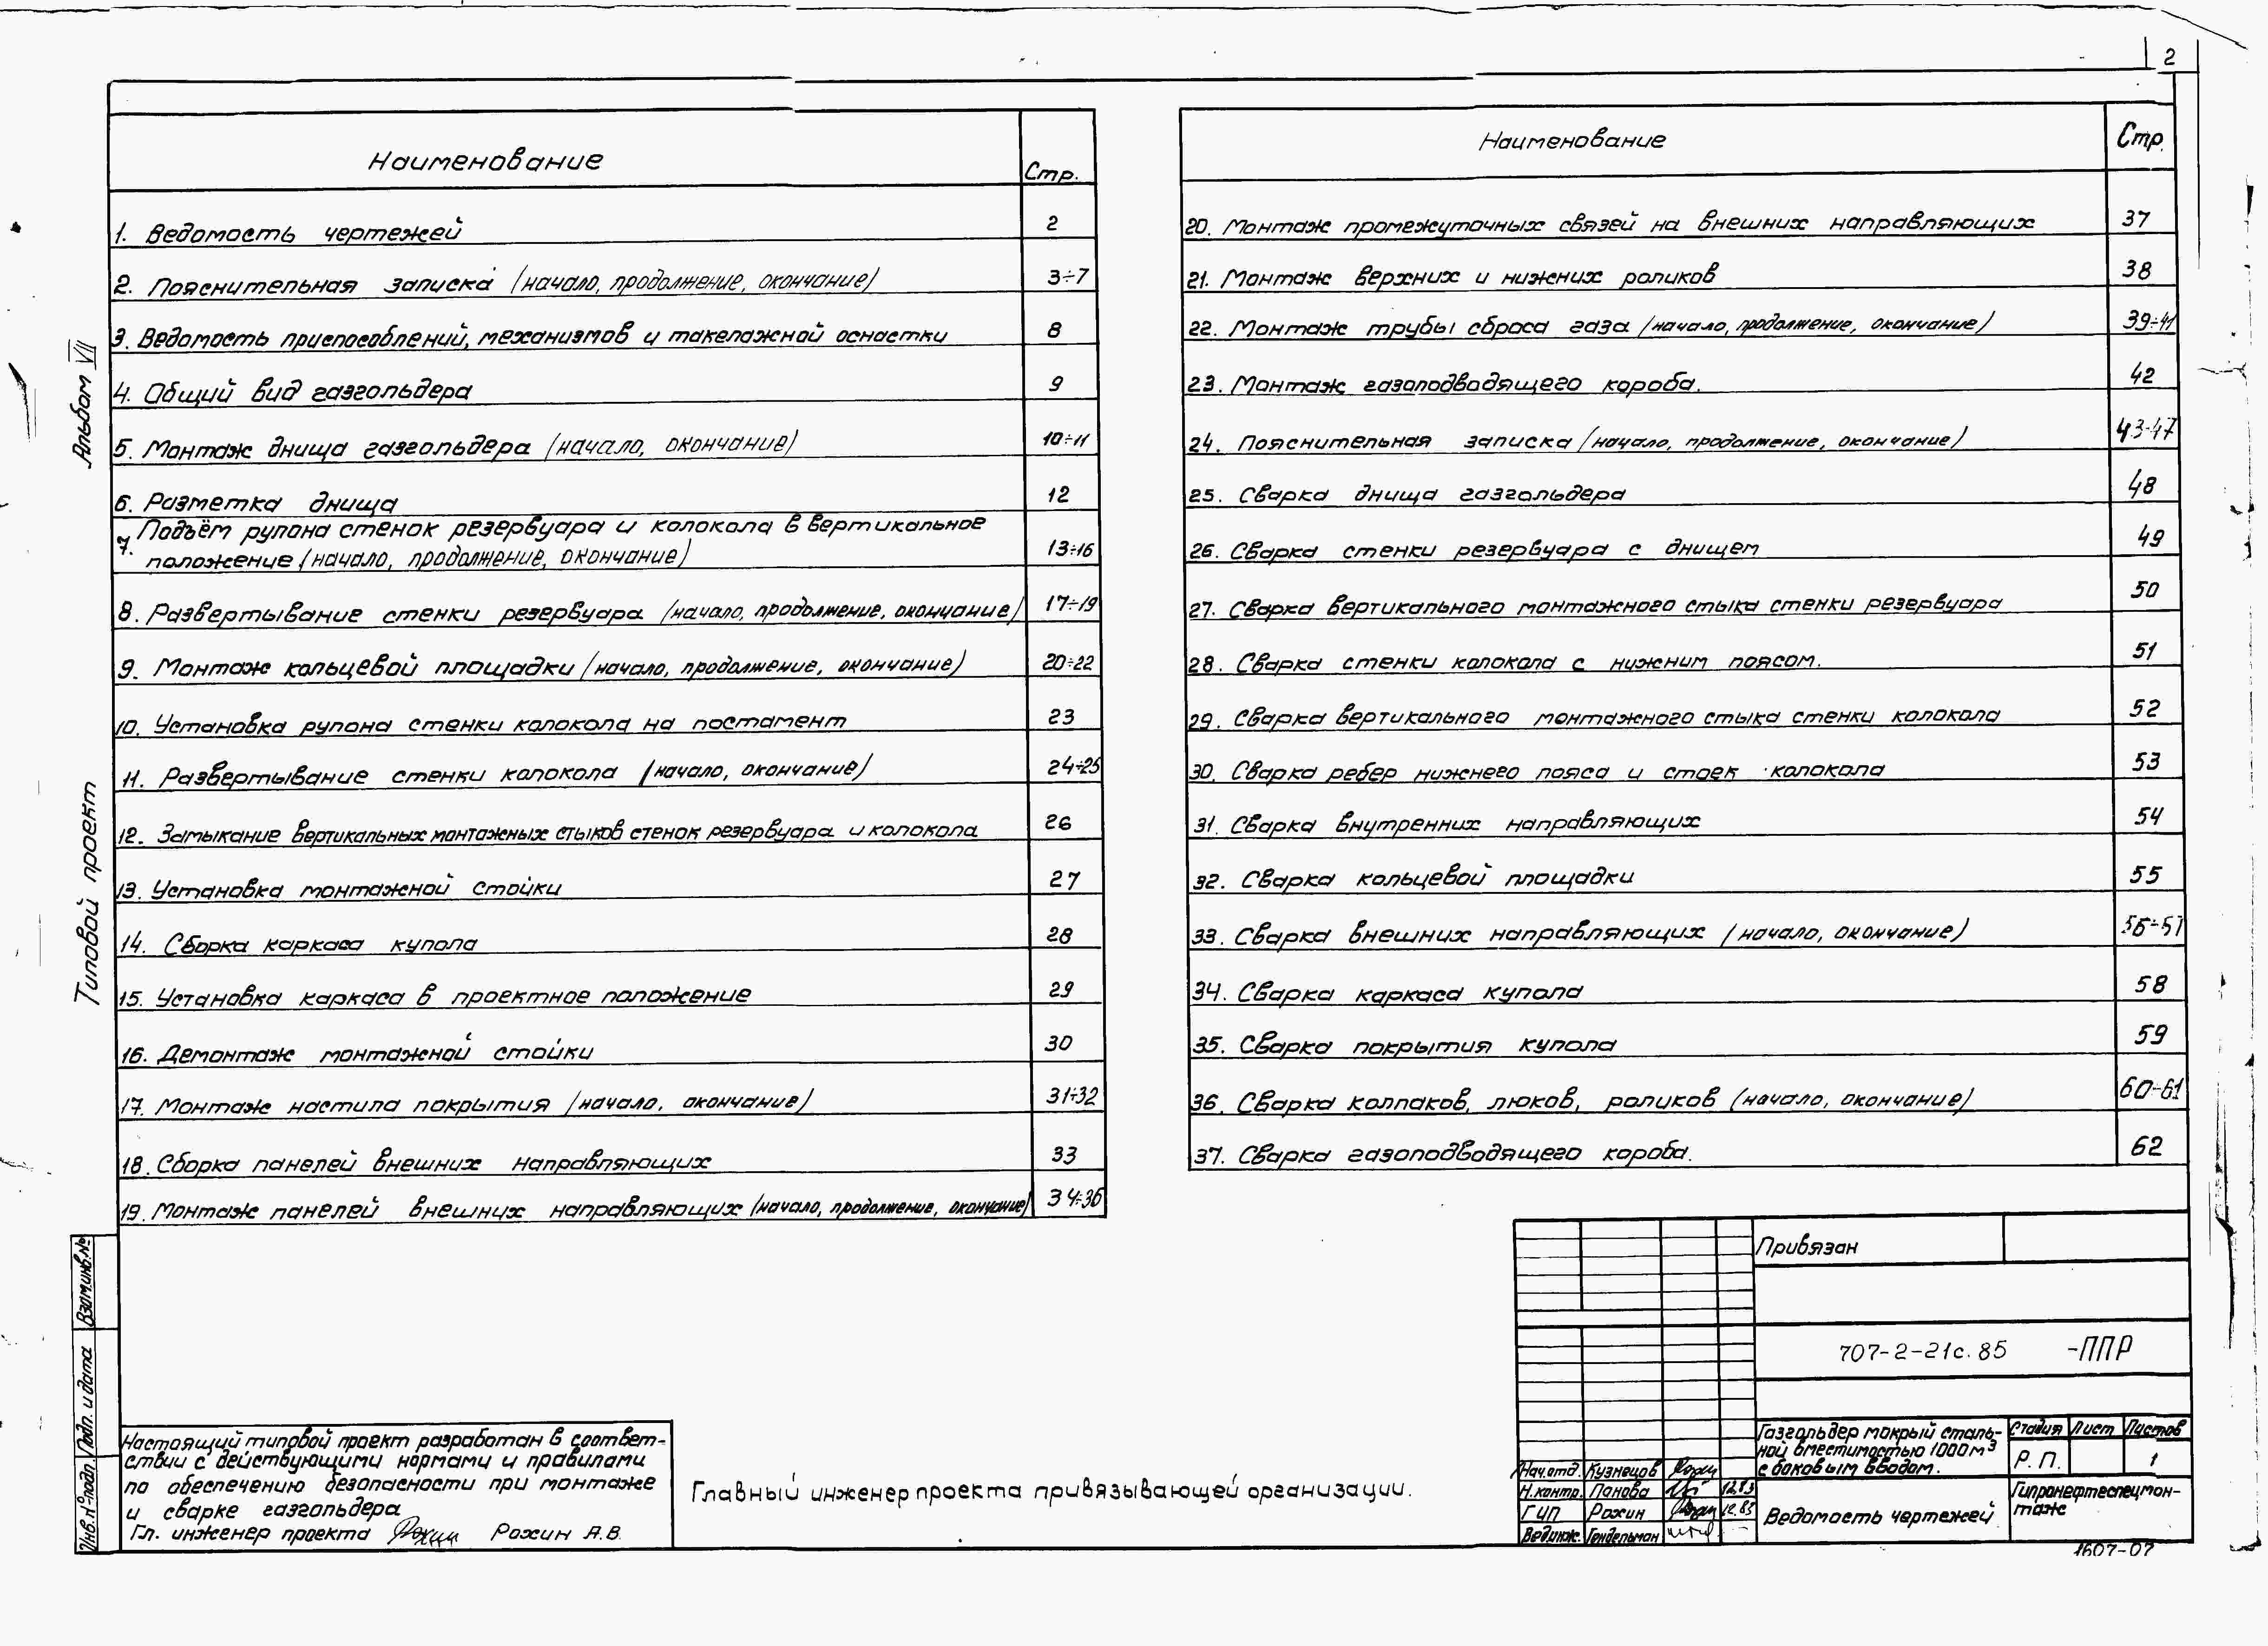 2
Наименование Стр.
1. Ведомость чертежей 2
2. Пояснительная записка (начало, продолжение, окончание) 3÷7
3. Ведомость приспособлений, механизмов и такелажной оснастки 8
4. Общий вид газгольдера 9
5. Монтаж днища газгольдера (начало, окончание) 10÷11
6. Разметка днища 12
7. Подъём рулона стенок резервуара и колокола в вертикальное
положение (начало, продолжение, окончание) 13÷16
8. Развертывание стенки резервуара (начало, продолжение, окончание) 17÷19
9. Монтаж кольцевой площадки (начало, продолжение, окончание) 20÷22
10. Установка рулона стенки колокола на постамент 23
11. Развертывание стенки колокола (начало, окончание) 24÷25
12. Замыкание вертикальных монтажных стыков стенок резервуара и колокола 26
13. Установка монтажной стойки 27
14. Сборка каркаса купола 28
15. Установка каркаса в проектное положение 29
16. Демонтаж монтажной стойки 30
17. Монтаж настила покрытия (начало, окончание) 31÷32
18. Сборка панелей внешних направляющих 33
19. Монтаж панелей внешних направляющих (начало, продолжение, окончание) 34÷36
Наименование Стр.
20. Монтаж промежуточных связей на внешних направляющих 37
21. Монтаж верхних и нижних роликов 38
22. Монтаж трубы сброса газа (начало, продолжение, окончание) 39÷41
23. Монтаж газоподводящего короба. 42
24. Пояснительная записка (начало, продолжение, окончание) 43-47
25. Сварка днища газгольдера 48
26. Сварка стенки резервуара с днищем 49
27. Сварка вертикального монтажного стыка стенки резервуара 50
28. Сварка стенки колокола с нижним поясом. 51
29. Сварка вертикального монтажного стыка стенки колокола 52
30. Сварка ребер нижнего пояса и стоек колокола 53
31. Сварка внутренних направляющих 54
32. Сварка кольцевой площадки 55
33. Сварка внешних направляющих (начало, окончание) 56÷57
34. Сварка каркаса купола 58
35. Сварка покрытия купола 59
36. Сварка колпаков, люков, роликов (начало, окончание) 60-61
37. Сварка газоподводящего короба. 62
Альбом VII
Типовой проект
Взам.инв.№
Подп. и дата
Инв.№подл.
Настоящий типовой проект разработан в соответ-
ствии с действующими нормами и правилами
по обеспечению безопасности при монтаже
и сварке газгольдера
Гл. инженер проекта Рохин А.В.
Главный инженер проекта привязывающей организации.
Привязан
707-2-21с.85 -ППР
Газгольдер мокрый сталь-
ной вместимостью 1000м³
с боковым вводом.
Стадия Лист Листов
Р.П. 1
Нач.отд. Кузнецов
Н.контр. Панова 12.83
ГИП Рохин 12.83
Вед.инж. Гендельман
Ведомость чертежей
Гипронефтеспецмон-
таж
1607-07